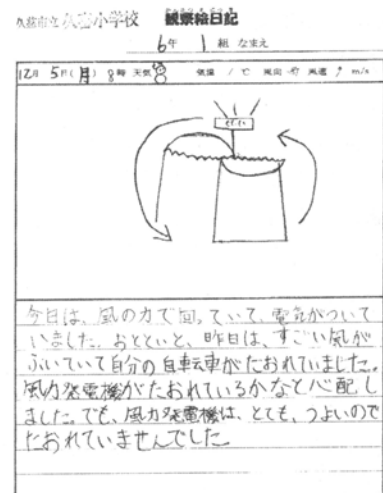 久慈市立久慈小学校 観察絵日記
6年 1組 なまえ
12月 5日(月) 8時 天気 気温 1℃ 風向 風速 m/s
今日は、風の力で回っていて、電気がついて
いました。おとといと、昨日は、すごい風が
ふいていて自分の自転車がたおれていました。
風力発電機がたおれているかなと心配し
ました。でも、風力発電機は、とても、つよいので
たおれていませんでした。